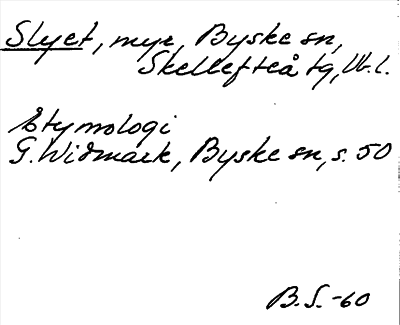 Slyet, myr, Byske sn,
Skellefteå tg, Vb.l.
Etymologi
G. Widmark, Byske sn, s. 50
B.S.-60